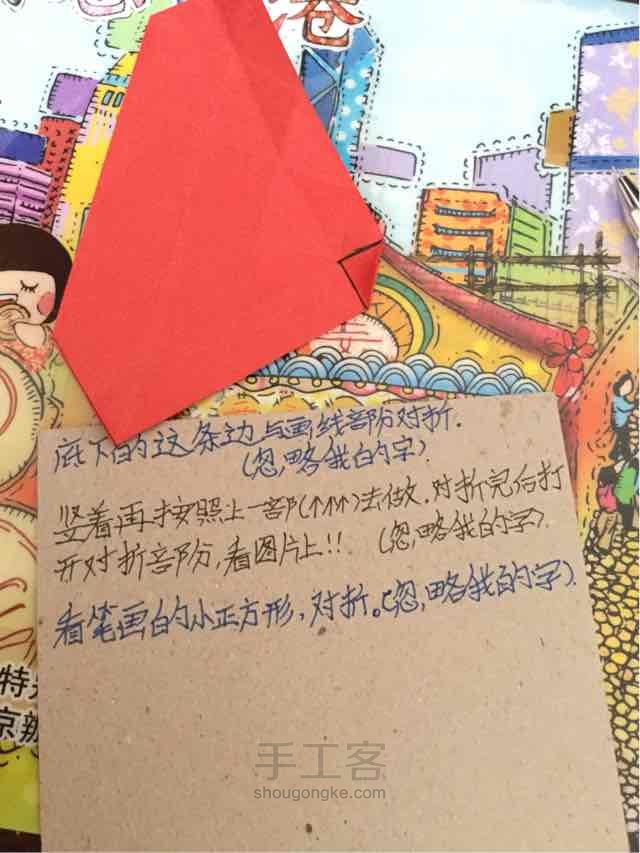 港
底下的这条边与画线部份对折.
(忽略我的字)
竖着再按照上一部(↑↑↑)去做.对折完后打
开对折部分,看图片上!! (忽略我的字).
看笔画的小正方形,对折。(忽略我的字).
特
京
手工客
shougongke.com